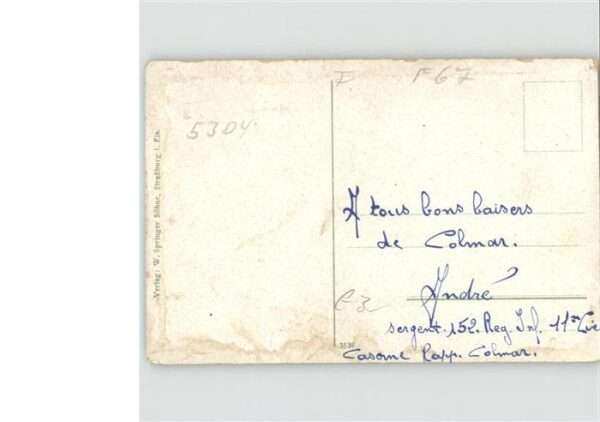 F F67
5304.
Verlag: W. Springer Söhne, Straßburg i. Els.
A tous bons baisers
de Colmar.
André
e3
sergent. 152. Reg. Inf. 11me Cie
Caserne Rapp. Colmar.